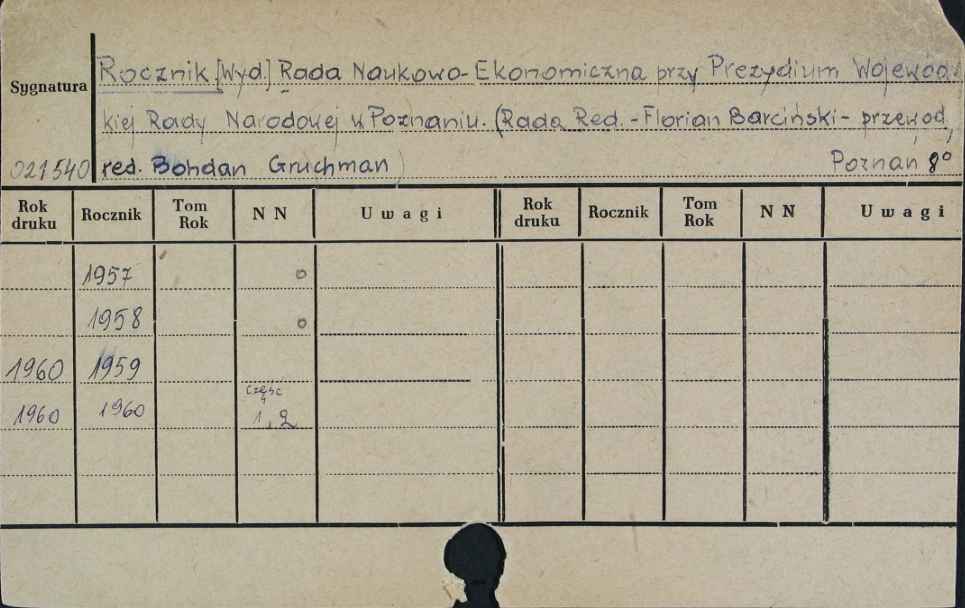 Sygnatura
Rocznik [Wyd.] Rada Naukowo-Ekonomiczna przy Prezydium Wojewódz
kiej Rady Narodowej w Poznaniu. (Rada Red. - Florian Barciński - przewod,
021540 red. Bohdan Gruchman) Poznań 8°
Rok druku Rocznik Tom Rok N N Uwagi Rok druku Rocznik Tom Rok N N Uwagi
1957 o
1958 o
1960 1959
część
1960 1960 1, 2